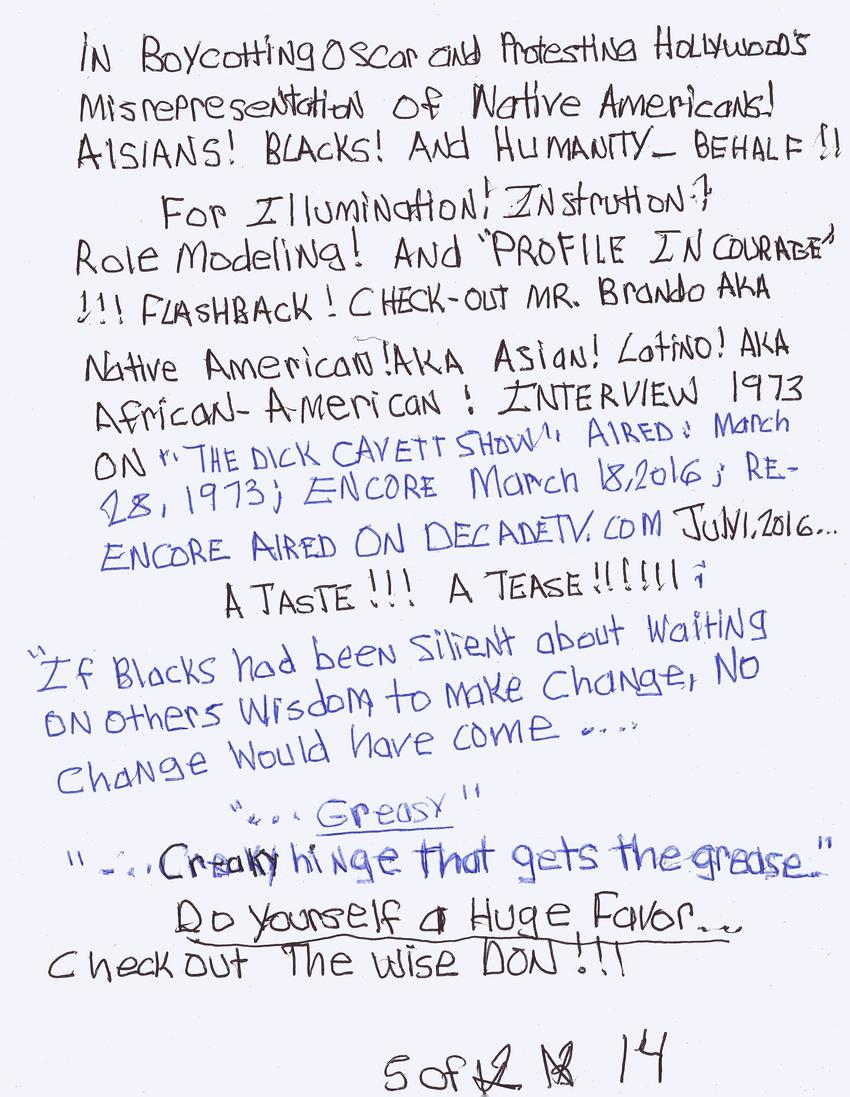 IN BoycottiNg OScar and Protesting HollywooD'S
MisrepreseNtatioN Of Native AmericaNs!
AISIANS! BLACKS! AND HUMANITY_ BEHALF !!
For IllumiNatioN! INstrutioN!
Role ModeliNg! AND "PROFILE IN COURAGE"
!!! FLASHBACK! CHECK-OUT MR. BraNdo AKA
Native AmericaN! AKA AsiaN! LatiNo! AKA
AfricaN-AmericaN! INTERVIEW 1973
ON "THE DICK CAVETT SHOW": AIRED: March
28, 1973; ENCORE March 18, 2016; RE-
ENCORE AIRED ON DECADETV.COM 2016...
A TASTE!!! A TEASE!!!!!!;
"If Blacks had been Silient about WaitiNg
ON others Wisdom to make ChaNge, No
ChaNge Would have come ....
"... Greasy"
"... Creaky hiNge that gets the grease."
Do Yourself a Huge Favor...
Check out The Wise DON!!!
5 of 14